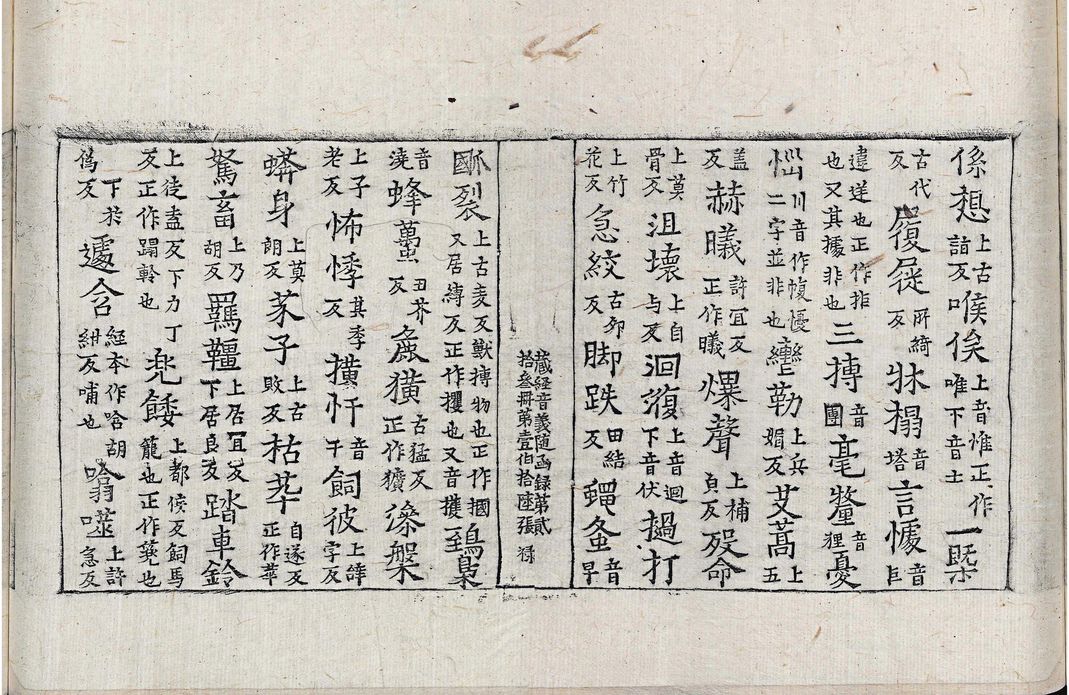 係想上古詣反喉俟上音惟正作唯下音士一既
古代反履屣所綺反牀榻音塔言懅音巨
違遽也正作拒也又其據非也三摶音團毫釐音狸憂
㤞川音作愎懮二字並非也轡勒上兵媚反艾蒿上五
盖反赫曦許冝反正作曦爆聲上補皃反殁命
上莫骨反沮壞上自与反洄澓上音迴下音伏撾打
上竹花反急絞古夘反脚跌田結反蠅蚤音早
藏経音義随函録第貳拾叁冊第壹伯拾陸張
㼌裂上古麦反獸摶物也正作摑又居縛反正作攫也又音擭鵄梟
音澆蜂蠆丑芥反麁獷古猛反正作獷澡槃
上子老反怖悸其季反獷忓音干飼彼上寺反
蟒身上莫朗反芥子上古敗反枯萃自遂反正作
駑畜上乃胡反羈韁上居冝反下居良反踏車鈴
上徒盍反下力丁反正作蹋軨也兠餧上都侯反飼馬籠也正作
下扵偽反遽含経本作唅胡紺反哺也噏噬上許急反